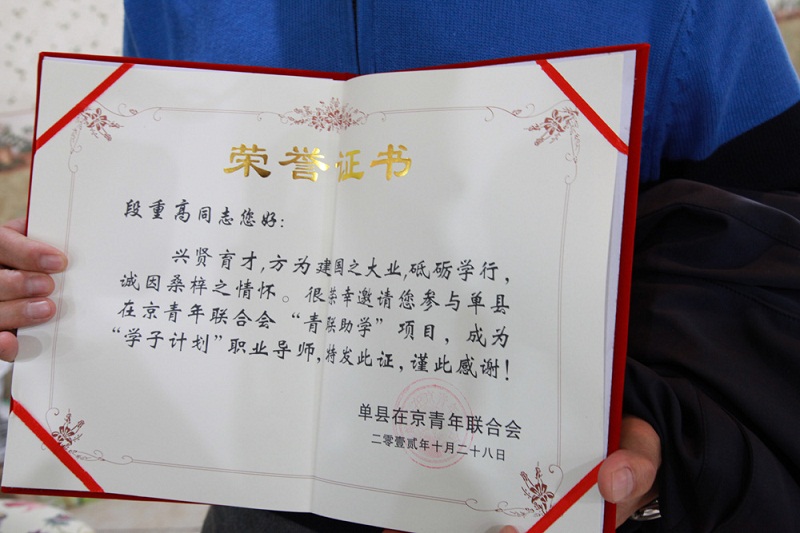 荣誉证书
段重高同志您好：
兴贤育才，方为建国之大业，砥砺学行，
诚因桑梓之情怀。很荣幸邀请您参与单县
在京青年联合会“青联助学”项目，成为
“学子计划”职业导师，特发此证，谨此感谢！
单县在京青年联合会
二零壹贰年十月二十八日